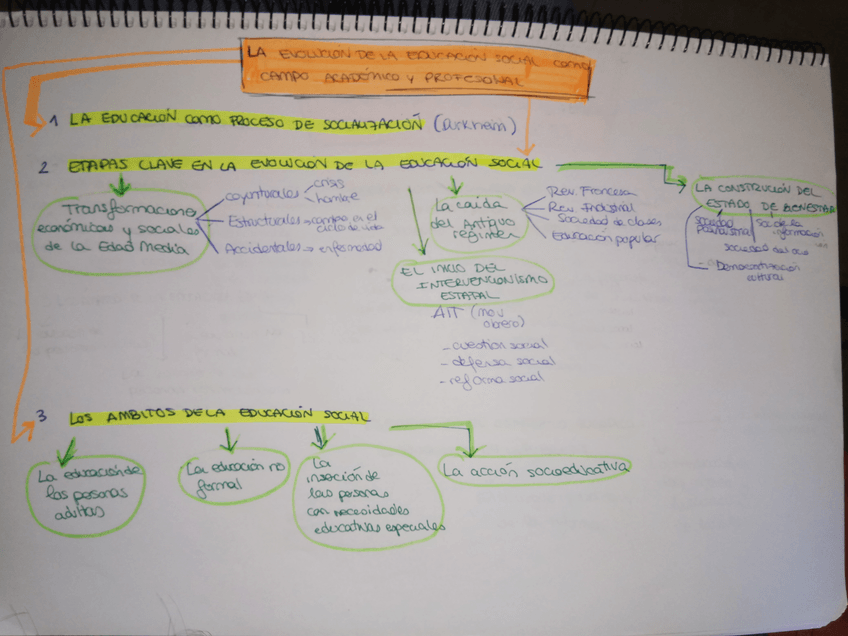 LA EVOLUCIÓN DE LA EDUCACIÓN SOCIAL COMO
CAMPO ACADÉMICO Y PROFESIONAL
1 LA EDUCACIÓN COMO PROCESO DE SOCIALIZACIÓN (Durkheim)
2 ETAPAS CLAVE EN LA EVOLUCIÓN DE LA EDUCACIÓN SOCIAL
Transformaciones
económicas y sociales
de la Edad Media
coyunturales
crisis
hambre
Estructurales → cambio en el
ciclo de vida
Accidentales → enfermedad
EL INICIO DEL
INTERVENCIONISMO
ESTATAL
AIT (mov
obrero)
- cuestión social
- defensa social
- reforma social
La caída
del Antiguo
régimen
Rev. Francesa
Rev. Industrial
Sociedad de clases
Educación popular
LA CONSTRUCIÓN DEL
ESTADO DE BIENESTAR
Sociedad
Postindustrial
Soc de la
información
Sociedad del ocio
- Democratización
cultural
3 LOS AMBITOS DE LA EDUCACIÓN SOCIAL
La educación de
las personas
adultas
La educación no
formal
La
inserción de
las personas
con necesidades
educativas especiales
La acción socioeducativa